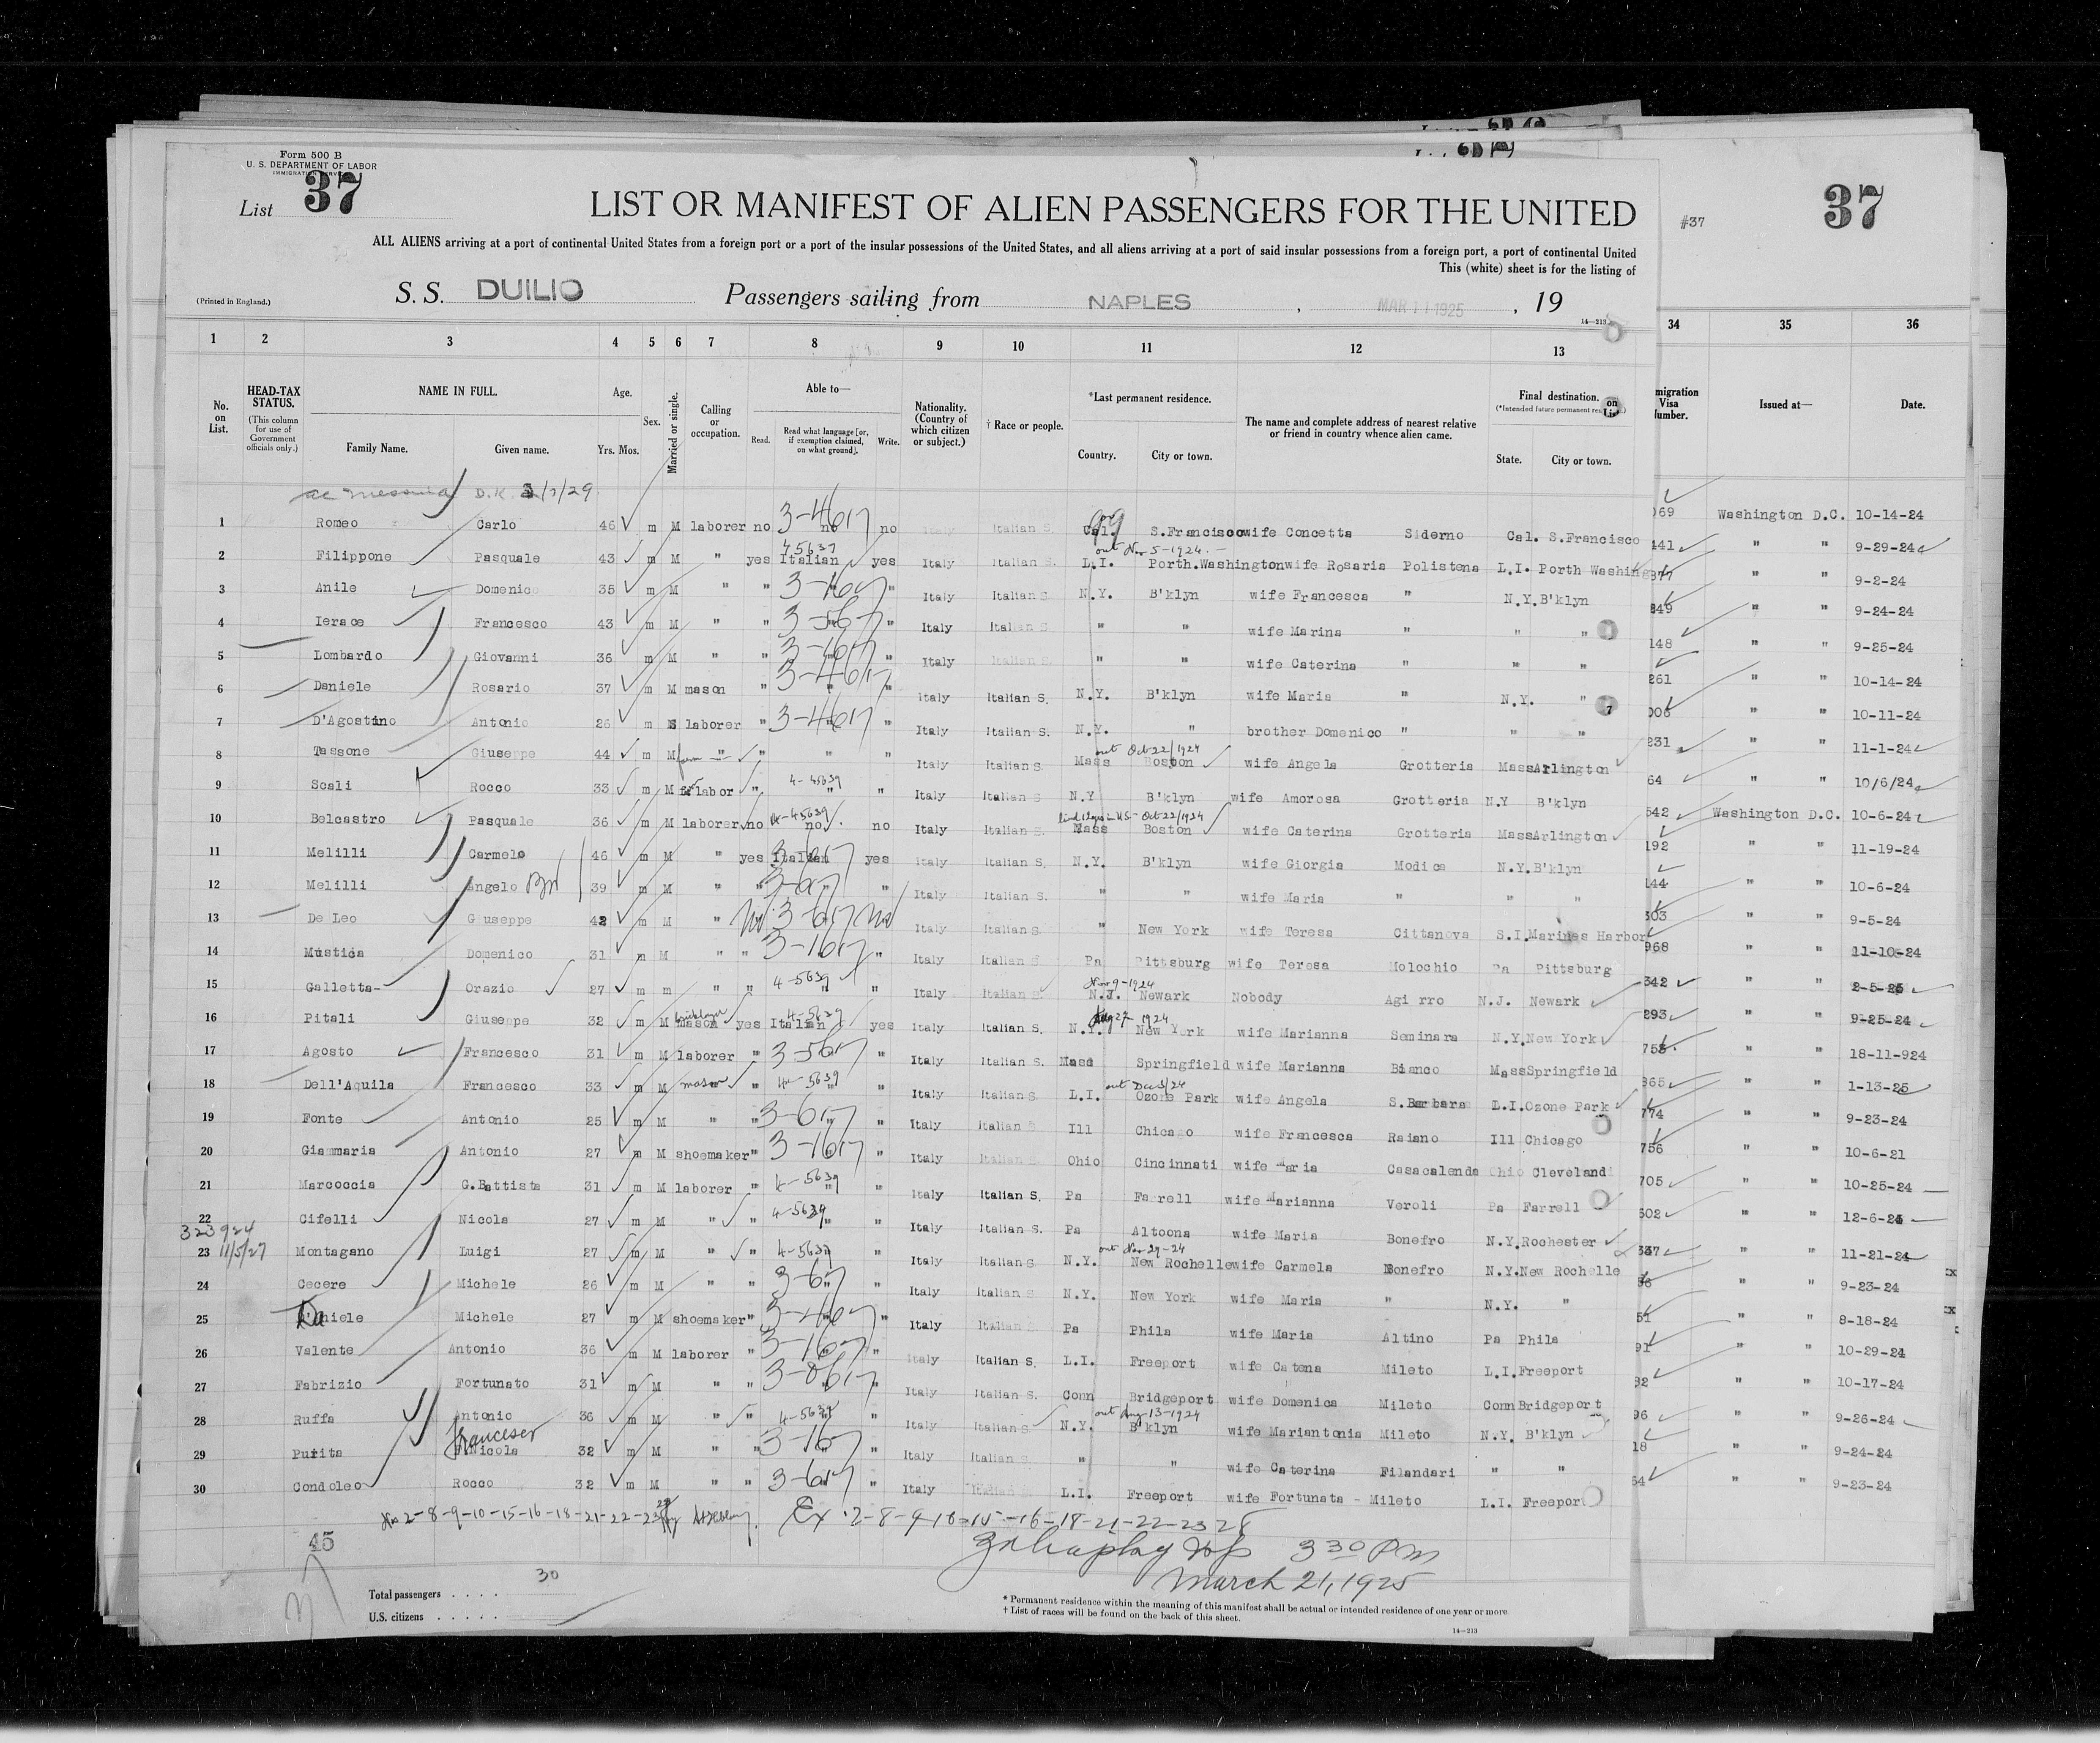 Form 500 B
U. S. DEPARTMENT OF LABOR
IMMIGRATION SERVICE
List 37
LIST OR MANIFEST OF ALIEN PASSENGERS FOR THE UNITED
#37 37
ALL ALIENS arriving at a port of continental United States from a foreign port or a port of the insular possessions of the United States, and all aliens arriving at a port of said insular possessions from a foreign port, a port of continental United
This (white) sheet is for the listing of
(Printed in England.)
S. S. DUILIO Passengers sailing from NAPLES , MAR 11 1925 , 19
14—213
1 2 3 4 5 6 7 8 9 10 11 12 13 34 35 36
No. on List.
HEAD-TAX STATUS.
(This column for use of Government officials only.)
NAME IN FULL.
Family Name. Given name.
Age.
Yrs. Mos.
Sex.
Married or single.
Calling or occupation.
Able to—
Read. Read what language [or, if exemption claimed, on what ground]. Write.
Nationality. (Country of which citizen or subject.)
† Race or people.
*Last permanent residence.
Country. City or town.
The name and complete address of nearest relative or friend in country whence alien came.
Final destination.
(*Intended future permanent
State. City or town.
on List
migration Visa umber.
Issued at—
Date.
D.K.
1 Romeo Carlo 46 m M laborer no 3-4617 no no Italian S. Cal. S.Francisco wife Concetta Siderno Cal. S.Francisco 069 Washington D.C. 10-14-24
out Nov 5-1924.
2 Filippone Pasquale 43 m M " yes 45639 Italian yes Italy Italian S. L.I. Porth.Washington wife Rosaria Polistena L.I. Porth Washing 441 " " 9-29-24
3 Anile Domenico 35 m M " " 3-1617 " Italy Italian S. N.Y. B'klyn wife Francesca " N.Y. B'klyn 377 " " 9-2-24
4 Ierace Francesco 43 m M " " 3-567 " Italy Italian S. " " wife Marina " " " 849 " " 9-24-24
5 Lombardo Giovanni 36 m M " " 3-4617 " Italy Italian S. " " wife Caterina " " " 148 " " 9-25-24
6 Daniele Rosario 37 m M mason " 3-4617 " Italy Italian S. N.Y. B'klyn wife Maria " N.Y. " 261 " " 10-14-24
7 D'Agostino Antonio 26 m S laborer " 3-4617 " Italy Italian S. N.Y. " brother Domenico " " " 006 " " 10-11-24
out Oct 22/1924
8 Tassone Giuseppe 44 m M " " " " Italy Italian S. Mass Boston wife Angela Grotteria Mass Arlington 231 " " 11-1-24
9 Scali Rocco 33 m M labor " 4-45639 " " Italy Italian S N.Y B'klyn wife Amorosa Grotteria N.Y B'klyn 64 " " 10/6/24
Oct 22/1924
10 Belcastro Pasquale 36 m M laborer no 4-45639 no no Italy Italian S. Mass Boston wife Caterina Grotteria Mass Arlington 542 Washington D.C. 10-6-24
11 Melilli Carmelo 46 m M " yes 3-617 Italian yes Italy Italian S. N.Y. B'klyn wife Giorgia Modica N.Y. B'klyn 192 " " 11-19-24
12 Melilli Angelo 39 m M " " 3-617 " " Italy Italian S. " " wife Maria " " " 144 " " 10-6-24
13 De Leo Giuseppe 42 m M " No 3-617 No Italy Italian S. " New York wife Teresa Cittanova S.I. Marines Harbor 303 " " 9-5-24
14 Mustica Domenico 31 m M " " 3-1617 " Italy Italian S Pa Pittsburg wife Teresa Molochio Pa Pittsburg 968 " " 11-10-24
Nov 9-1924
15 Galletta Orazio 27 m m " " 4-5639 " " Italy Italian S. N.J. Newark Nobody Agi rro N.J. Newark 342 " " 2-5-25
Aug 27 1924
16 Pitali Giuseppe 32 m M bricklayer mason yes 4-5639 Italian yes Italy Italian S. N.Y. New York wife Marianna Seminara N.Y. New York 293 " " 9-25-24
17 Agosto Francesco 31 m M laborer " 3-5617 " Italy Italian S. Mass Springfield wife Marianna Bianco Mass Springfield 753 " " 18-11-924
out Dec 3/24
18 Dell'Aquila Francesco 33 m M mason " 4-5639 " Italy Italian S. L.I. Ozone Park wife Angela S.Barbara L.I. Ozone Park 965 " " 1-13-25
19 Fonte Antonio 25 m M " " 3-617 " Italy Italian S Ill Chicago wife Francesca Raiano Ill Chicago 774 " " 9-23-24
20 Giammaria Antonio 27 m M shoemaker " 3-1617 " Italy Italian S Ohio Cincinnati wife Maria Casacalenda Ohio Cleveland 756 " " 10-6-21
21 Marcoccia G.Battista 31 m M laborer " 4-5639 " " Italy Italian S. Pa Farrell wife Marianna Veroli Pa Farrell 705 " " 10-25-24
22 Cifelli Nicola 27 m M " " 4-5639 " Italy Italian S. Pa Altoona wife Maria Bonefro N.Y. Rochester 502 " " 12-6-24
323924
11/5/27
out Nov 29-24
23 Montagano Luigi 27 m M " " 4-5639 " Italy Italian S. N.Y. New Rochelle wife Carmela Bonefro N.Y. New Rochelle 337 " " 11-21-24
24 Cecere Michele 26 m M " " 3-617 " Italy Italian S N.Y. New York wife Maria " N.Y. " 56 " " 9-23-24
25 Daniele Michele 27 m M shoemaker " 3-4617 " Italy Italian S Pa Phila wife Maria Altino Pa Phila 51 " " 8-18-24
26 Valente Antonio 36 m M laborer " 3-1617 " Italy Italian S. L.I. Freeport wife Catena Mileto L.I. Freeport 91 " " 10-29-24
27 Fabrizio Fortunato 31 m M " " 3-8617 " Italy Italian S. Conn Bridgeport wife Domenica Mileto Conn Bridgeport 32 " " 10-17-24
out Aug-13-1924
28 Ruffa Antonio 36 m M " " 4-5639 " Italy Italian S N.Y. B'klyn wife Mariantonia Mileto N.Y. B'klyn 96 " " 9-26-24
Francesco
29 Purita Nicola 32 m M " " 3-1617 " Italy Italian S. " " wife Caterina Filandari " " 18 " " 9-24-24
30 Condoleo Rocco 32 m M " " 3-617 " Italy Italian S L.I. Freeport wife Fortunata - Mileto L.I. Freeport 64 " " 9-23-24
No 2-8-9-10-15-16-18-21-22-23 Ex 2-8-9-10-15-16-18-21-22-23 28
45
3 30 PM
March 21, 1925
Total passengers . . . . 30
U.S. citizens . . . . .
* Permanent residence within the meaning of this manifest shall be actual or intended residence of one year or more.
† List of races will be found on the back of this sheet.
14—213